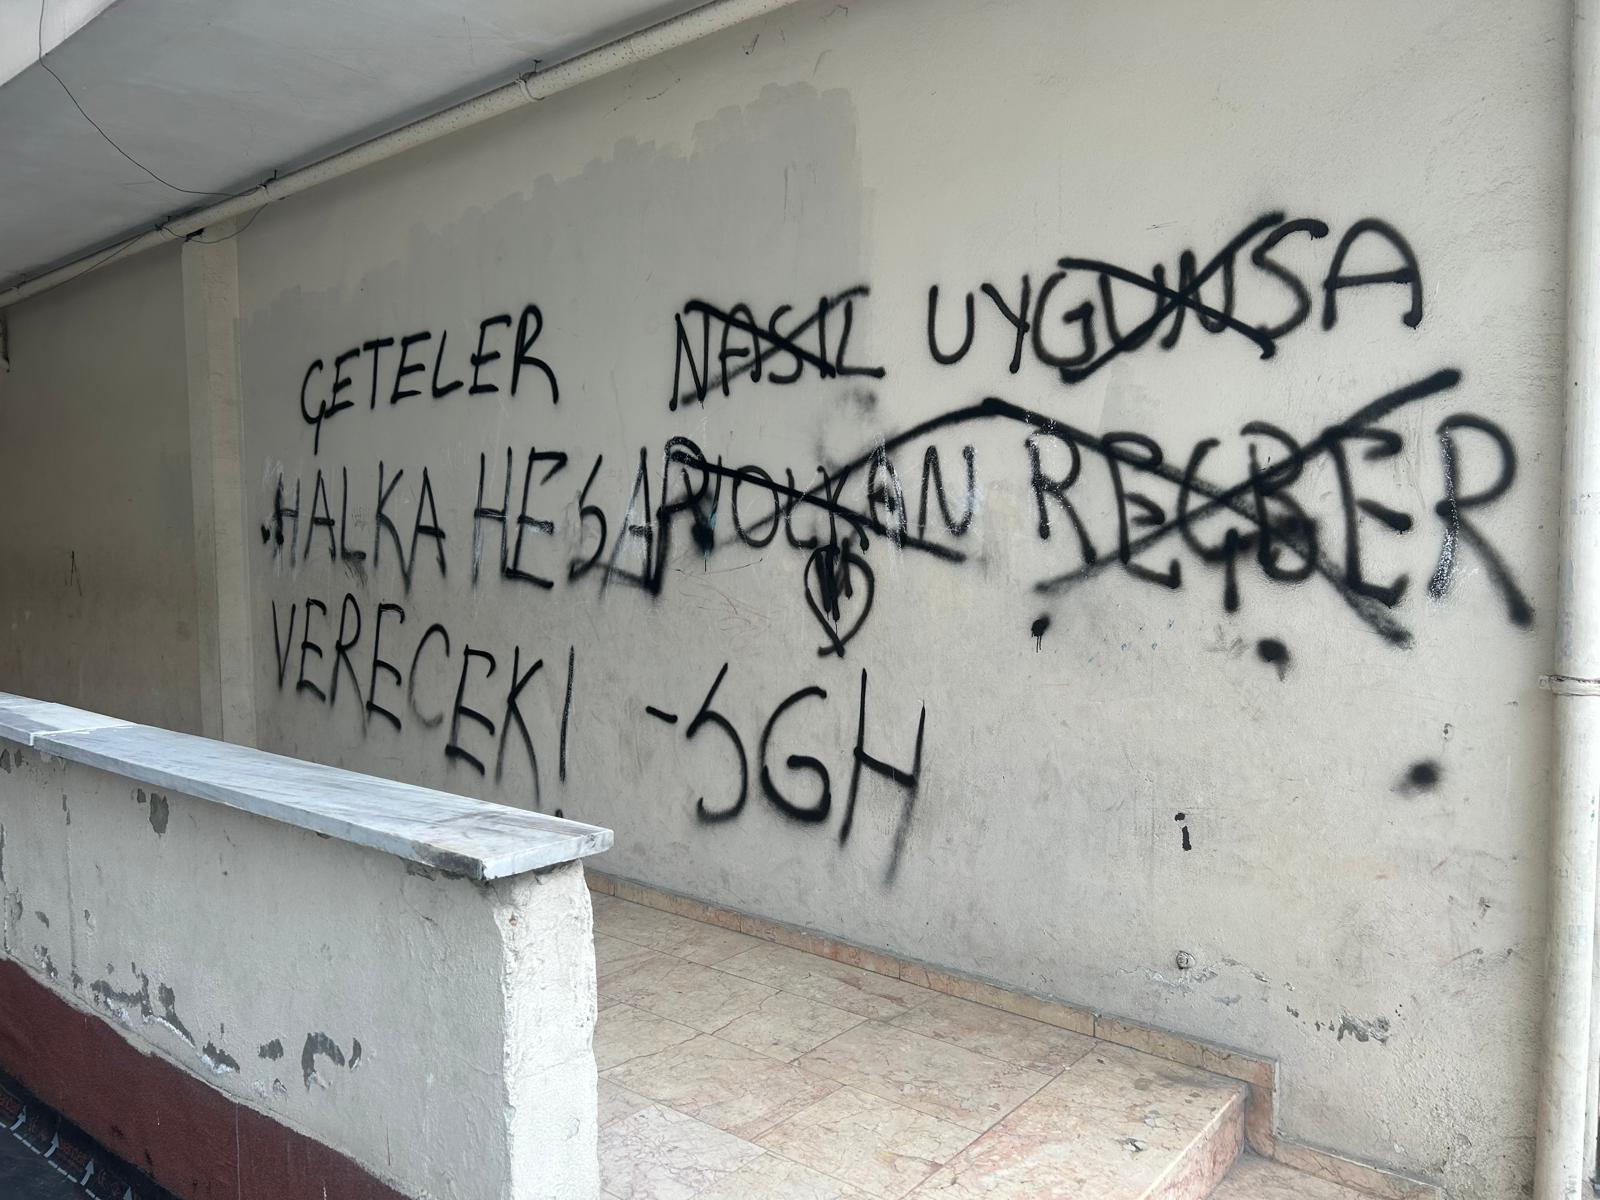 ÇETELER NASIL UYGUNSA
HALKA HESAP VOLKAN REÇBER
VERECEK! -SGH